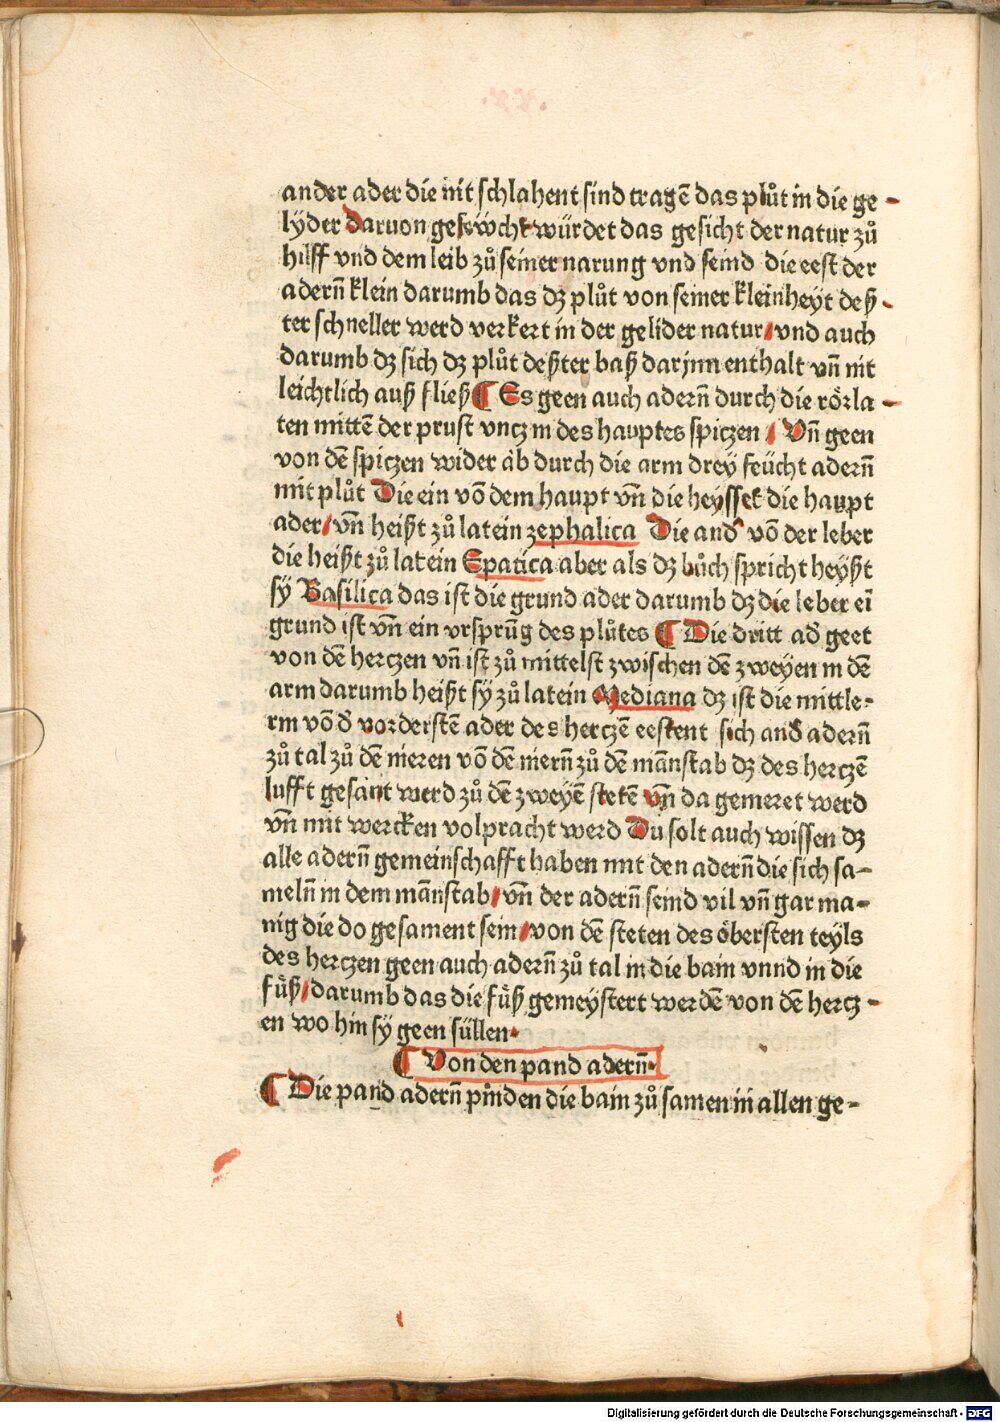 ander ader die nit schlahent sind tragē das plůt in die ge-
lyder daruon geswöcht würdet das gesicht der natur zů
hilff vnd dem leib zů seiner narung vnd seind die eest der
adern̄ klein darumb das dz plůt von seiner kleinheyt deß-
ter schneller werd verkert in der gelider natur/vnd auch
darumb dz sich dz plůt deßter baß darjnn enthalt vn̄ nit
leichtlich auß fließ ¶ Es geen auch adern̄ durch die rörla-
ten mittē der prust vntz in des hauptes spitzen / Vn̄ geen
von dē spitzen wider ab durch die arm drey feücht adern̄
mit plůt Die ein vō dem haupt vn̄ die heysset die haupt
ader/vn̄ heißt zů latein zephalica Die and᷑ vō der leber
die heißt zů latein Epatica aber als dz bůch spricht heyßt
sy Basilica das ist die grund ader darumb dz die leber ei
grund ist vn̄ ein vrsprūg des plůtes ¶ Die dritt ad᷑ geet
von dē hertzen vn̄ ist zů mittelst zwischen dē zweyen in dē
arm darumb heißt sy zů latein Mediana dz ist die mittle-
rin vō d᷑ vorderstē ader des hertzē eestent sich and᷑ adern̄
zů tal zů dē nieren vō dē niern̄ zů dē mānstab dz des hertzē
lufft gesant werd zů dē zweyē stetē vn̄ da gemeret werd
vn̄ mit wercken volpracht werd Du solt auch wissen dz
alle adern̄ gemeinschafft haben mit den adern̄ die sich sa-
meln̄ in dem mānstab/vn̄ der adern̄ seind vil vn̄ gar ma-
nig die do gesament sein/von dē steten des öbersten teyls
des hertzen geen auch adern̄ zů tal in die bain vnnd in die
füß/darumb das die füß gemeystert werdē von dē hertz-
en wo hin sy geen süllen.
¶ Von den pand adern̄.
¶ Die pand adern̄ pinden die bain zů samen in allen ge-
Digitalisierung gefördert durch die Deutsche Forschungsgemeinschaft - DFG